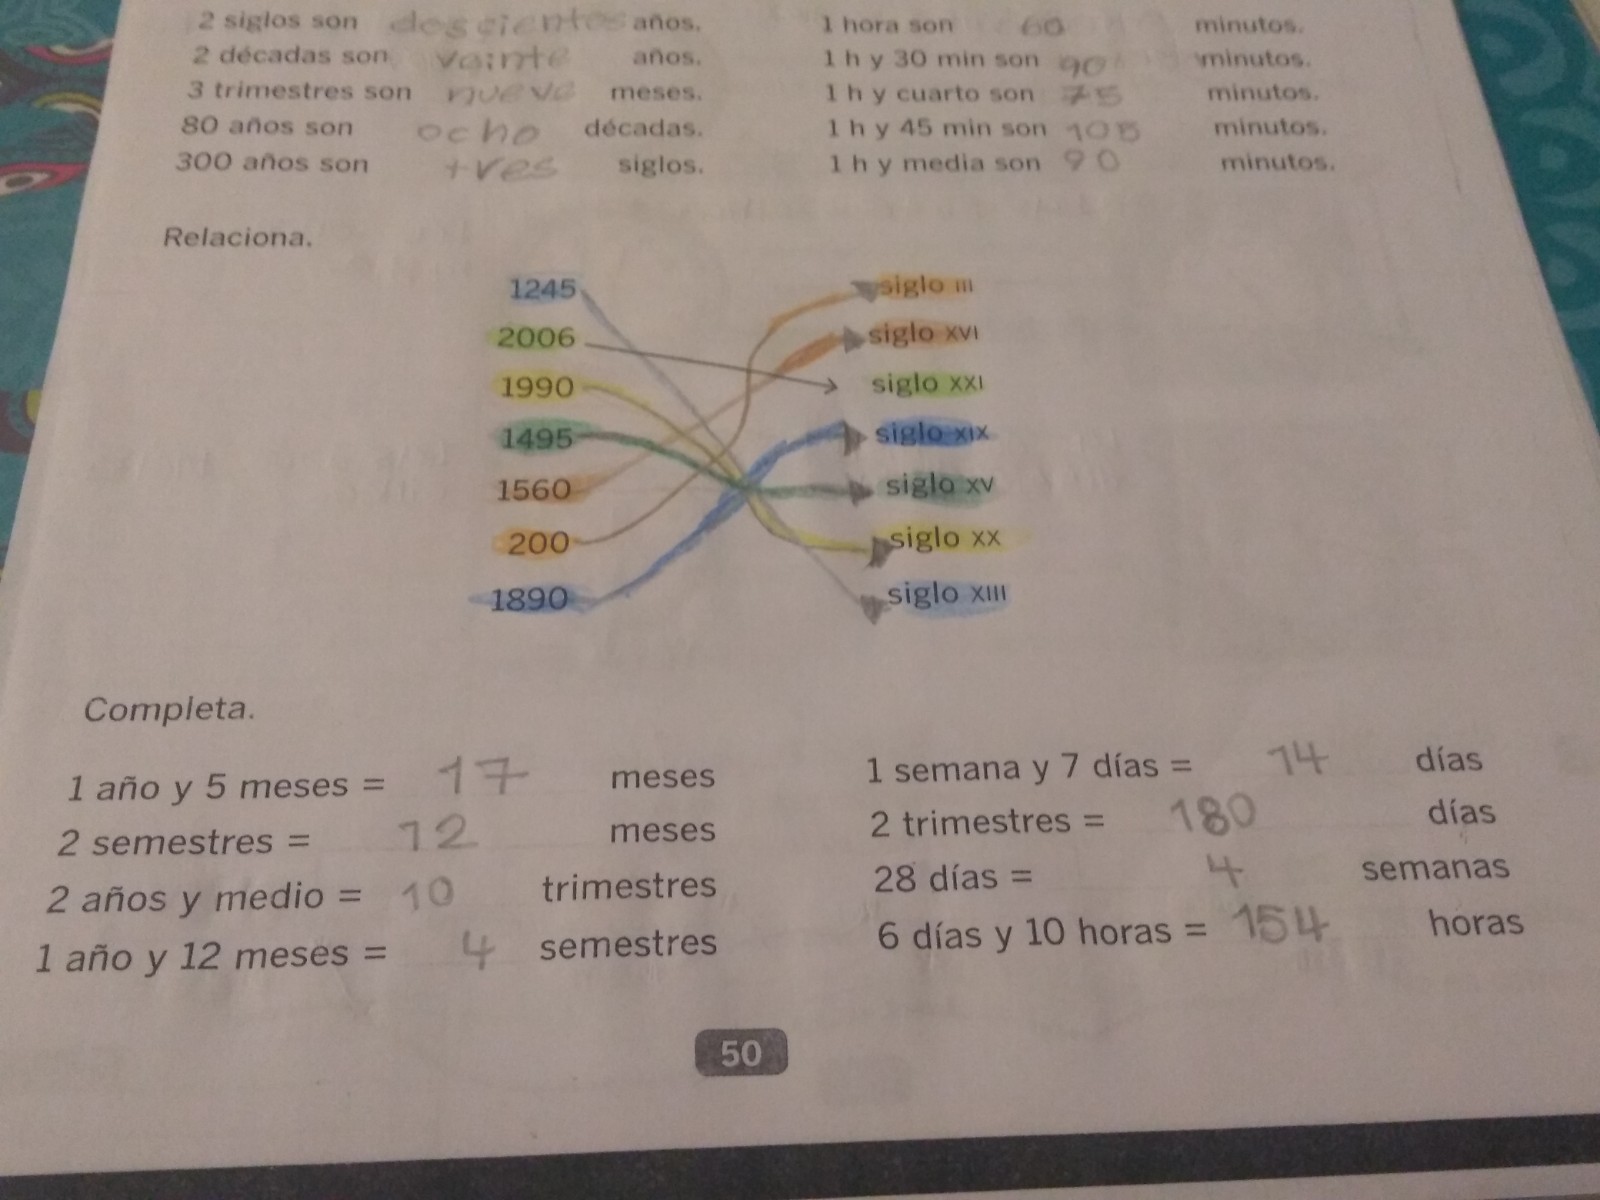 2 siglos son descientos años.
2 décadas son vainte años.
3 trimestres son nueve meses.
80 años son ocho décadas.
300 años son tres siglos.
1 hora son 60 minutos.
1 h y 30 min son 90 minutos.
1 h y cuarto son 75 minutos.
1 h y 45 min son 105 minutos.
1 h y media son 90 minutos.
Relaciona.
1245 siglo III
2006 siglo XVI
1990 siglo XXI
1495 siglo XIX
1560 siglo XV
200 siglo XX
1890 siglo XIII
Completa.
1 año y 5 meses = 17 meses
2 semestres = 12 meses
2 años y medio = 10 trimestres
1 año y 12 meses = 4 semestres
1 semana y 7 días = 14 días
2 trimestres = 180 días
28 días = 4 semanas
6 días y 10 horas = 154 horas
50